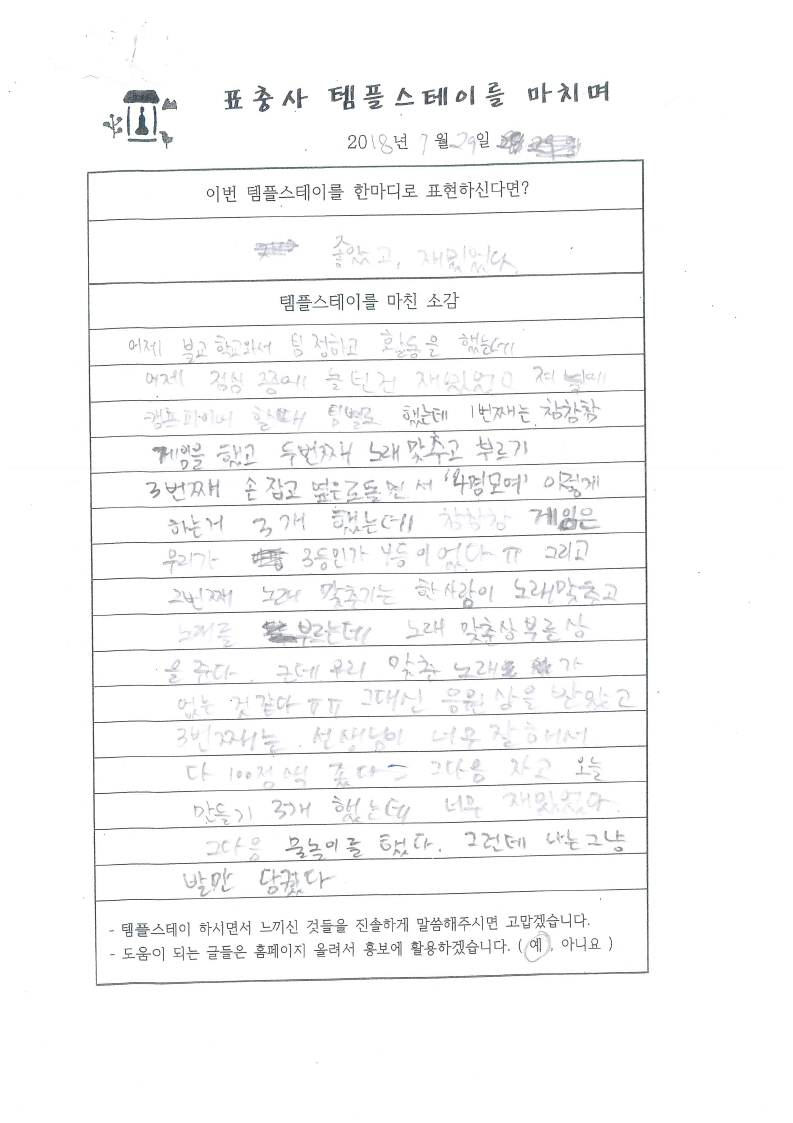 표충사 템플스테이를 마치며
2018년 7월 29일
이번 템플스테이를 한마디로 표현하신다면?
좋았고, 재밌었다
템플스테이를 마친 소감
어제 불교 학교와서 팀 정하고 활동을 했는데
어제 점심 놀던건 재밌었고 저녁에
캠프파이어 할때 팀별로 했는데 1번째는 참참참
게임을 했고 두번째 노래 맞추고 부르기
3번째 손 잡고 돌면서 '4명모여' 이렇게
하는거 3개 했는데 참참참 게임은
우리가 3등인가 4등이었다 ㅠ 그리고
2번째 노래 맞추기는 한사람이 노래맞추고
노래를 부르는데 노래 맞춘상 부를상
을 준다. 근데 우리 맞춘 노래 가
없는 것 같다 ㅠㅠ 그대신 응원상을 받았고
3번째는 선생님이 너무 잘해서
다 100점씩 줬다 그다음 자고 오늘
만들기 3개 했는데 너무 재밌었다.
그다음 물놀이를 했다. 그런데 나는 그냥
발만 담궜다
- 템플스테이 하시면서 느끼신 것들을 진솔하게 말씀해주시면 고맙겠습니다.
- 도움이 되는 글들은 홈페이지 올려서 홍보에 활용하겠습니다. ( 예 , 아니요 )